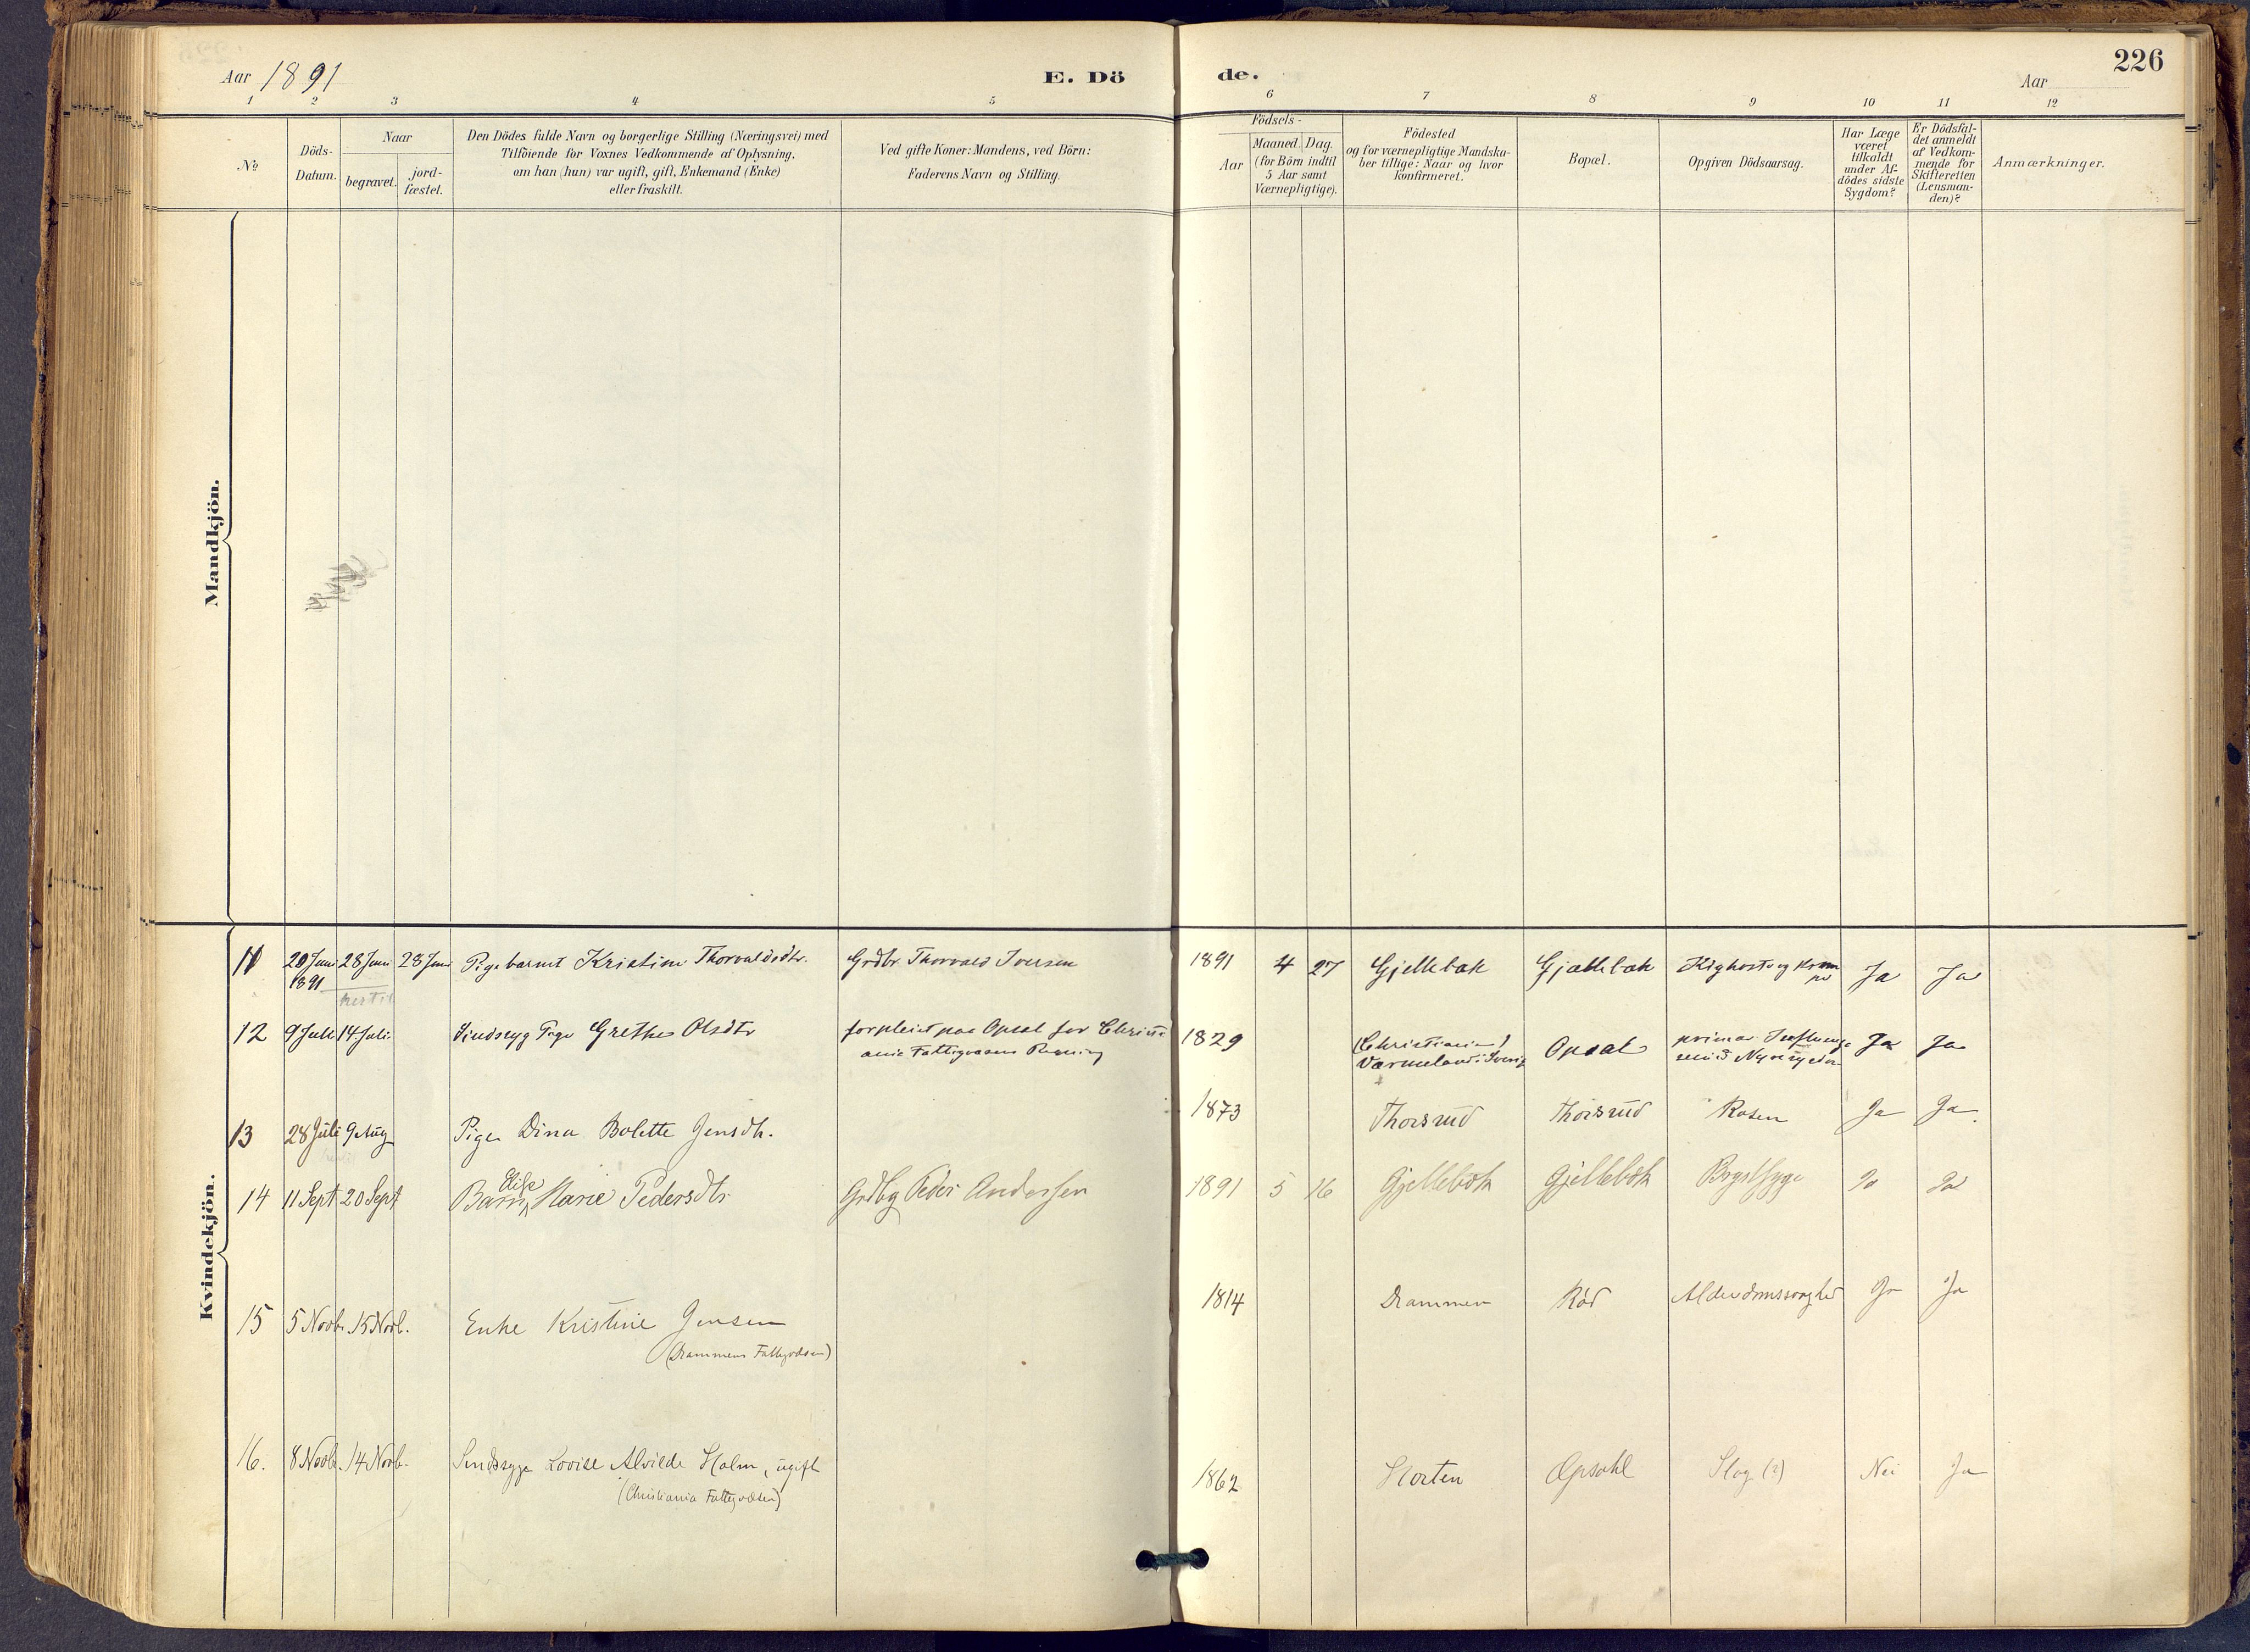 Aar 1891
E. Dö
de.
226
Aar
1 2 3 4 5 6 7 8 9 10 11 12
No
Döds-
Datum.
Naar
begravet.
jord-
fæstet.
Den Dödes fulde Navn og borgerlige Stilling (Næringsvei) med
Tilföiende for Voxnes Vedkommende af Oplysning,
om han (hun) var ugift, gift, Enkemand (Enke)
eller fraskilt.
Ved gifte Koner: Mandens, ved Börn:
Faderens Navn og Stilling.
Födsels-
Aar
Maaned. Dag.
(for Börn indtil
5 Aar samt
Værnepligtige).
Födested
og for værnepligtige Mandska-
ber tillige: Naar og hvor
konfirmeret.
Bopæl.
Opgiven Dödsaarsag.
Har Læge
været
tilkaldt
under Af-
dödes sidste
Sygdom?
Er Dödsfal-
det anmeldt
af Vedkom-
mende for
Skifteretten
(Lensman-
den)?
Anmærkninger.
Mandkjön.
Kvindekjön.
11 20 Juni 28 Juni 28 Juni Pigebarnet Kristine Thorvaldsdtr. Grdbr. Thorvald Iversen 1891 4 27 Gjellebæk Gjællebæk Kighoste og Kram Ja Ja
1891
12 9 Juli 14 Juli Sindssyg Pige Grethe Olsdtr forpleiet paa Opsal for Christi- 1829 (Christiania) Opsal Ja Ja
ania Fattigvæsens Regning Værmeland i Sverig
13 28 Juli 9 Aug Pige Dina Bolette Jensdtr. 1873 Thorsrud Thorsrud Rosen Ja Ja.
14 11 Sept 20 Sept Barn Elise Marie Pedersdtr Grdbr Peder Anderssen 1891 5 16 Gjellebæk Gjellebæk Brystsyge Ja Ja
15 5 Novb. 15 Novb. Enke Kristine Jensen 1814 Drammen Röd Alderdomssvaghed Ja Ja
(Drammens Fattigvæsen)
16. 8 Novb. 14 Novb. Sindssyge Lovise Alvilde Holm, ugift 1862 Horten Opsahl Slag (?) Nei Ja
(Christiania Fattigvæsen)